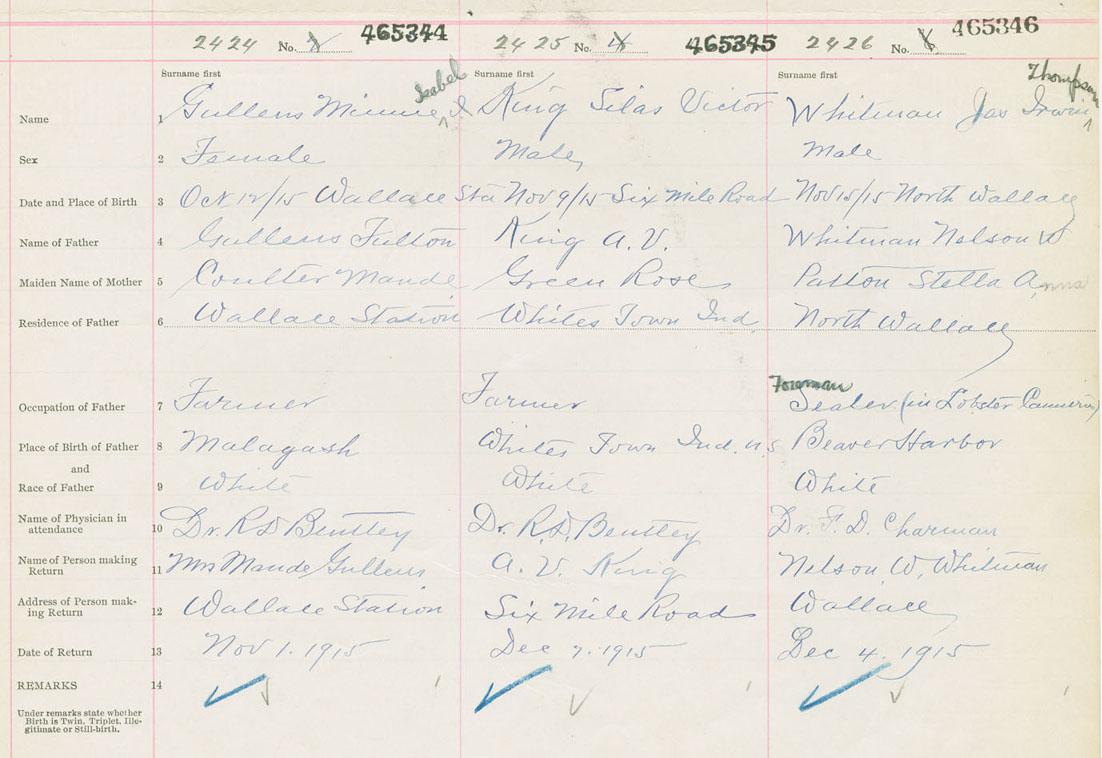 2424 No. 465344 2425 No. 4 465345 2426 No. 465346
Surname first Surname first Surname first
Isabel Thompson
Name 1 Gullens Minnie I King Silas Victor Whitman Jas Irwin
Sex 2 Female Male Male
Date and Place of Birth 3 Oct 12/15 Wallace Sta Nov 9/15 Six Mile Road Nov 15/15 North Wallace
Name of Father 4 Gullens Fulton King A.V. Whitman Nelson W
Maiden Name of Mother 5 Coulter Maude Green Rose Patton Stella Anna
Residence of Father 6 Wallace Station Whites Town Ind. North Wallace
Foreman
Occupation of Father 7 Farmer Farmer Sealer (in Lobster Canneries)
Place of Birth of Father 8 Malagash Whites Town Ind. U.S Beaver Harbor
and
Race of Father 9 White White White
Name of Physician in
attendance 10 Dr. R D Bentley Dr. R. D. Bentley Dr. F. D. Charman
Name of Person making
Return 11 Mrs Maude Gullens A. V. King Nelson W. Whitman
Address of Person mak-
ing Return 12 Wallace Station Six Mile Road Wallace
Date of Return 13 Nov 1. 1915 Dec 7. 1915 Dec 4. 1915
REMARKS 14
Under remarks state whether
Birth is Twin, Triplet, Ille-
gitimate or Still-birth.